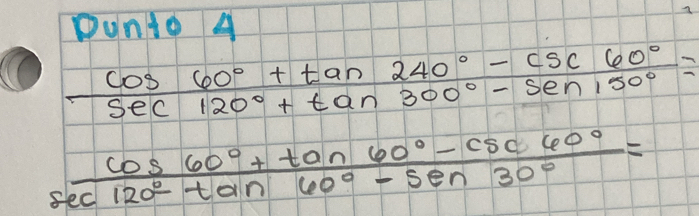 Punto 4
cos 60° + tan 240° - csc 60°
sec 120° + tan 300° - sen 150° =
cos 60° + tan 60° - csc 60° =
sec 120° - tan 60° - sen 30°